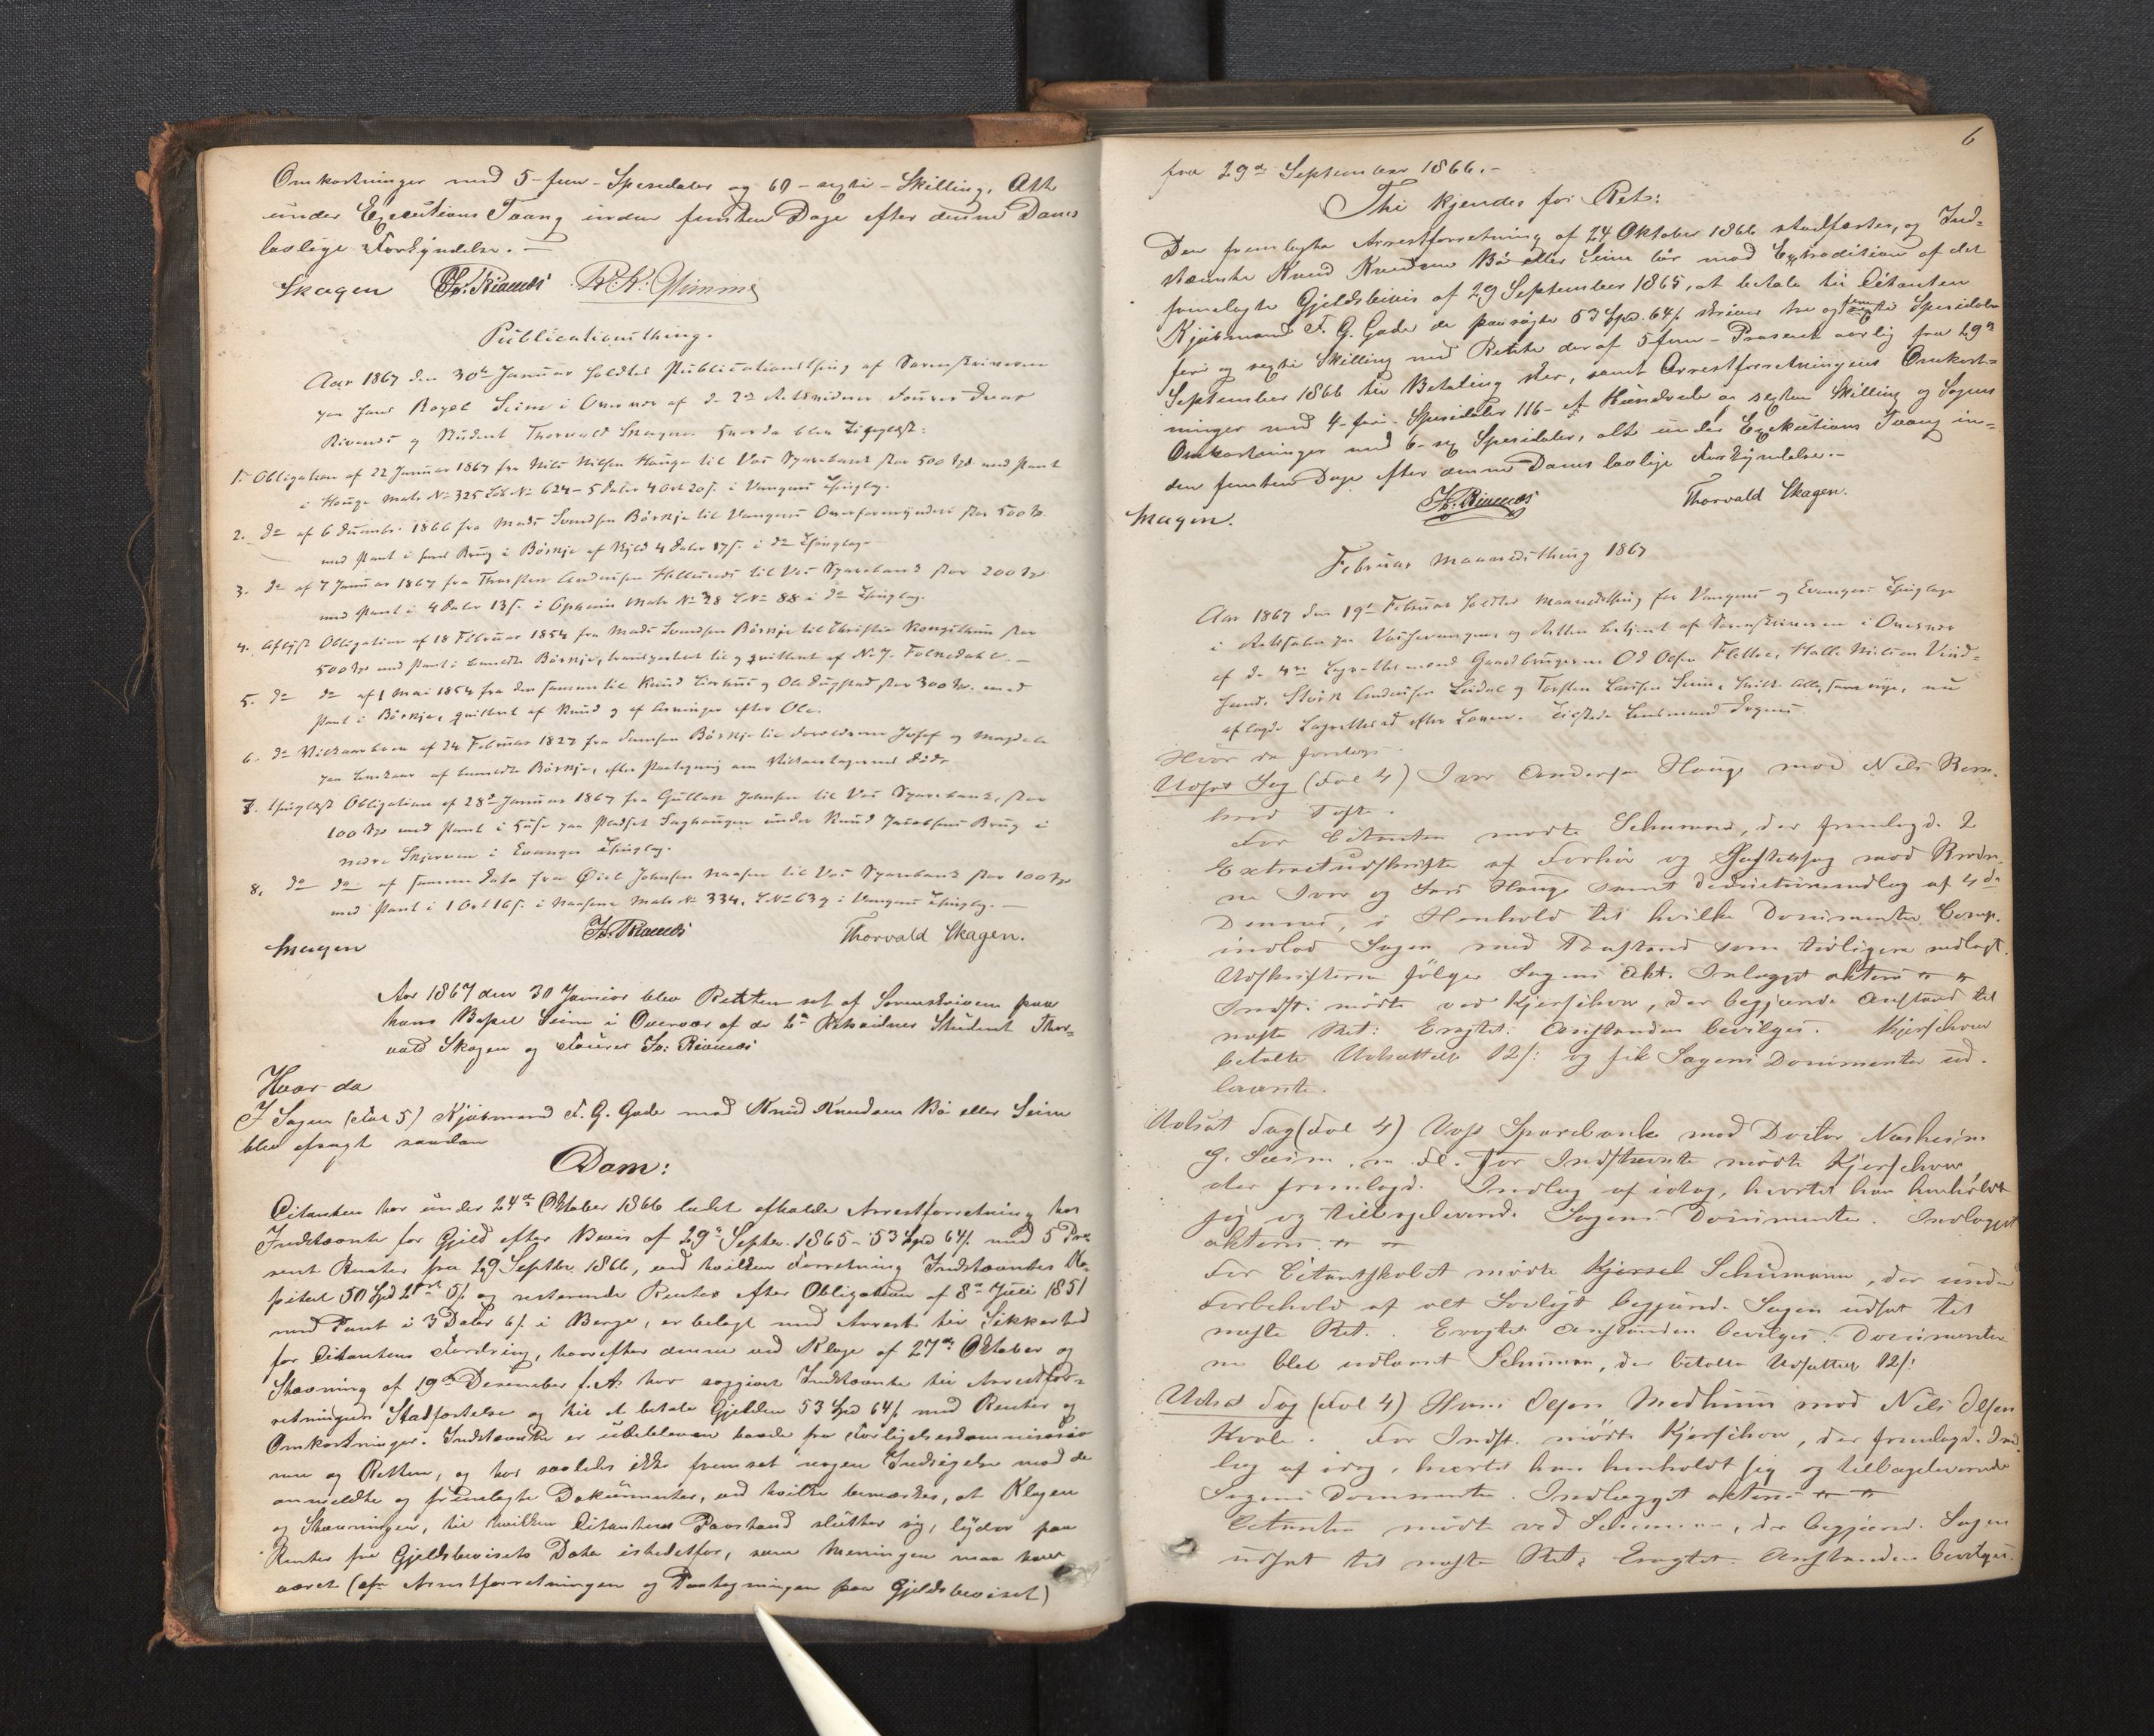 Omkostninger med 5 - fem - Specidaler og 60 - sexti - Skilling. Alt
under Executions Tvang inden femten Dage efter denne Doms
lovlige Forkyndelse. —
Skagen Fr. Rivenæs
Publicationsthing.
Aar 1867 den 30te Januar holdtes Publicationsthing af Sorenskriveren
paa hans Bopæl Seim i Overvær af de 2de Retsvidner Fourer
Rivenæs og Student Thorvald Skagen hvorda blev Thinglæst:
1. Obligation af 22 Januar 1867 fra Nils Nilsen Hauge til Vos Sparebank stor 500 Spd med Pant
i Hauge Matr No 325 Løb No 624 - 5 Daler 4 Ort 20 s. i Vangens Thinglag.
2. do af 6 December 1866 fra Mads Svendsen Børkje til Vangens Overformynderi stor 500 Sp.
med Pant i hans Brug i Børkje af Skyld 4 Daler 17 s. i do Thinglag.
3. do af 7 Januar 1867 fra Thorsten Andersen til Vos Sparebank stor 200 Spd
med Pant i 4 Daler 13 s. i Opheim Matr No 28 LNo 88 i do Thinglag.
4. Aflyst Obligation af 18 Februar 1854 fra Mads Svendsen Børkje til Christie Kongsthun stor
500 Spd med Pant i bemeldte Børkje, transporteret til og qvitteret af N. J. —
5. do do af 1 Mai 1854 fra den samme til Knud og Ole stor 300 Sp. med
Pant i Børkje, qvitteret af Knud og af Arvinger efter Ole.
6. do af 24 Februar 1827 fra Børkje til Forældrene og
paa af bemeldte Børkje, efter Paategning om døde
7. Thinglæst Obligation af 28de Januar 1867 fra Gullak Johnsen til Vos Sparebank, stor
100 Spd med Pant i Huse paa Pladset Saghaugen under Knud Jacobsens Brug i
nedre Skjerven i Evanger Thinglag.
8. do do af samme Dato fra Johnsen Naasen til Vos Sparebank stor 100 Spd
med Pant i 1 Ort 16 s. i Naasen Matr No 334, LNo 639 i Vangens Thinglag. —
Skagen Fr. Rivenæs Thorvald Skagen.
Aar 1867 den 30 Januar blev Retten sat af Sorenskriveren paa
hans Bopæl Seim i Overvær af de 2de Retsvidner Student Thor-
vald Skagen og Fourer Fr. Rivenæs
Hvor da
I Sagen (Fol 5) Kjøbmand F. G. Gade mod Knud Knudsen Bø eller Seim
blev afsagt saadan
Dom:
Citanten har under 24de Oktober 1866 ladet afholde Arrestforretning hos
Indstævnte for Gjeld efter Bevis af 29de Septbr. 1865 - 53 Spd 64 s. med 5 Pro-
cent Renter fra 29 Septbr. 1866, ved hvilken Forretning Indstævntes Ka-
pital 50 Spd 2 Ort 5 s. og resterende Renter efter Obligation af 8de Juli 1851
med Pant i 3 Daler 6 s. i Berge, er belagt med Arrest til Sikkerhed
for Citantens Fordring, hvorefter denne ved Klage af 27de Oktober og
Stævning af 19de December f. A. har sagsgivet Indstævnte til Arrestfor-
retningens Stadfæstelse og til at betale Gjelden 53 Spd 64 s. med Renter og
Omkostninger. Indstævnte er udebleven baade fra Forligelsescommissio-
nen og Retten, og har saaledes ikke fremsat nogen Indsigelse mod de
anmeldte og fremlagte Dokumenter, ved hvilke bemærkes, at Klagen
og Stævningen, til hvilken Citantens Paastand slutter sig, lyder paa
Renter fra Gjeldsbevisets Dato istedetfor, som Meningen maa have
været (cfr Arrestforretningen og Paategningen paa Gjeldsbeviset)
6
fra 29de September 1866. -
Thi kjendes for Ret:
Den fremlagte Arrestforretning af 24 Oktober 1866 stadfæstes, og Ind-
stævnte Knud Knudsen Bø eller Seim bør mod Extradition af det
fremlagte Gjeldsbevis af 29 September 1865, at betale til Citanten
Kjøbmand F. G. Gade de paasøgte 53 Spd. 64 s. skriver tre og femti Specidaler
fire og sexti Skilling med Rente deraf 5 fem - Procent aarlig fra 29de
September 1866 til Betaling sker, samt Arrestforretningens Omkost-
ninger med 4 - fire - Specidaler 116 - et Hundrede og sexten Skilling og Sagens
Omkostninger med 6 - sex Specidaler, alt under Exekutions Tvang in-
den femten Dage efter denne Doms lovlige Forkyndelse. -
Skagen. Fr. Rivenæs Thorvald Skagen.
Februar Maanedsthing 1867
Aar 1867 den 19de Februar holdtes Maanedsthing for Vangens og Evangers Thinglage
i Retssalen paa Vossevangen, og Retten betjent af Sorenskriveren i Overvær
af de 4re Lagrettesmænd Gaardbrugerne Od Olsen Flette, Halle Nielsen Vind-
Størk Andersen og Torsten Larssen Seim, hvilke alle, som nye, nu
aflagde Lagretteseed efter Loven. Tilstede Lensmand
Hvor da foretoges
Udsat Sag (Fol 4) Iver Andersen Hauge mod Nils
Tofte.
For Citanten mødte Schumann, der fremlagde 2
Extractudskrifter af Forhør og Justitssag mod Brødre-
ne Iver og Lars Hauge samt af 4de
Dennes, i Henhold til hvilke Documenter Comp.
indlod Sagen med Paastand som tidligere nedlagt.
Udskrifterne følger Sagens Akt. Indlægget akteres
Indst. mødte ved Kjerschow, der begjærede Anstand til
næste Ret: Eragtet: Anstanden bevilges. Kjerschow
betalte Udsættelse 12 s: og fik Sagens Documenter ud-
laante.
Udsat Sag (Fol 4) Voss Sparebank mod Doctor Næsheim
G. Seim m. fl. For Indstævnte mødte Kjerschow,
der fremlagde Indlæg af idag, hvortil han henholdt
sig og tilbageleverede Sagens Documenter. Indlægget
akteres
For Citantskabet mødte Schumann, der under
Forbehold af alt Lovligt begjærede Sagen udsat til
næste Ret. Eragtet Anstanden bevilges. Documenter-
ne blev udlaant Schuman, der betalte Udsættelse 12 s:
Udsat Sag (Fol 4) Hans Olsen Medhuus mod Nils Olsen
Kvale. For Indst. mødte Kjerschow, der fremlagde Ind-
læg af idag, hvortil han henholdt sig og tilbageleverede
Sagens Documenter. Indlægget akteres
Citanten mødte ved Schumann, der begjærede Sagen
udsat til næste Ret; Eragtet: Anstanden bevilges.